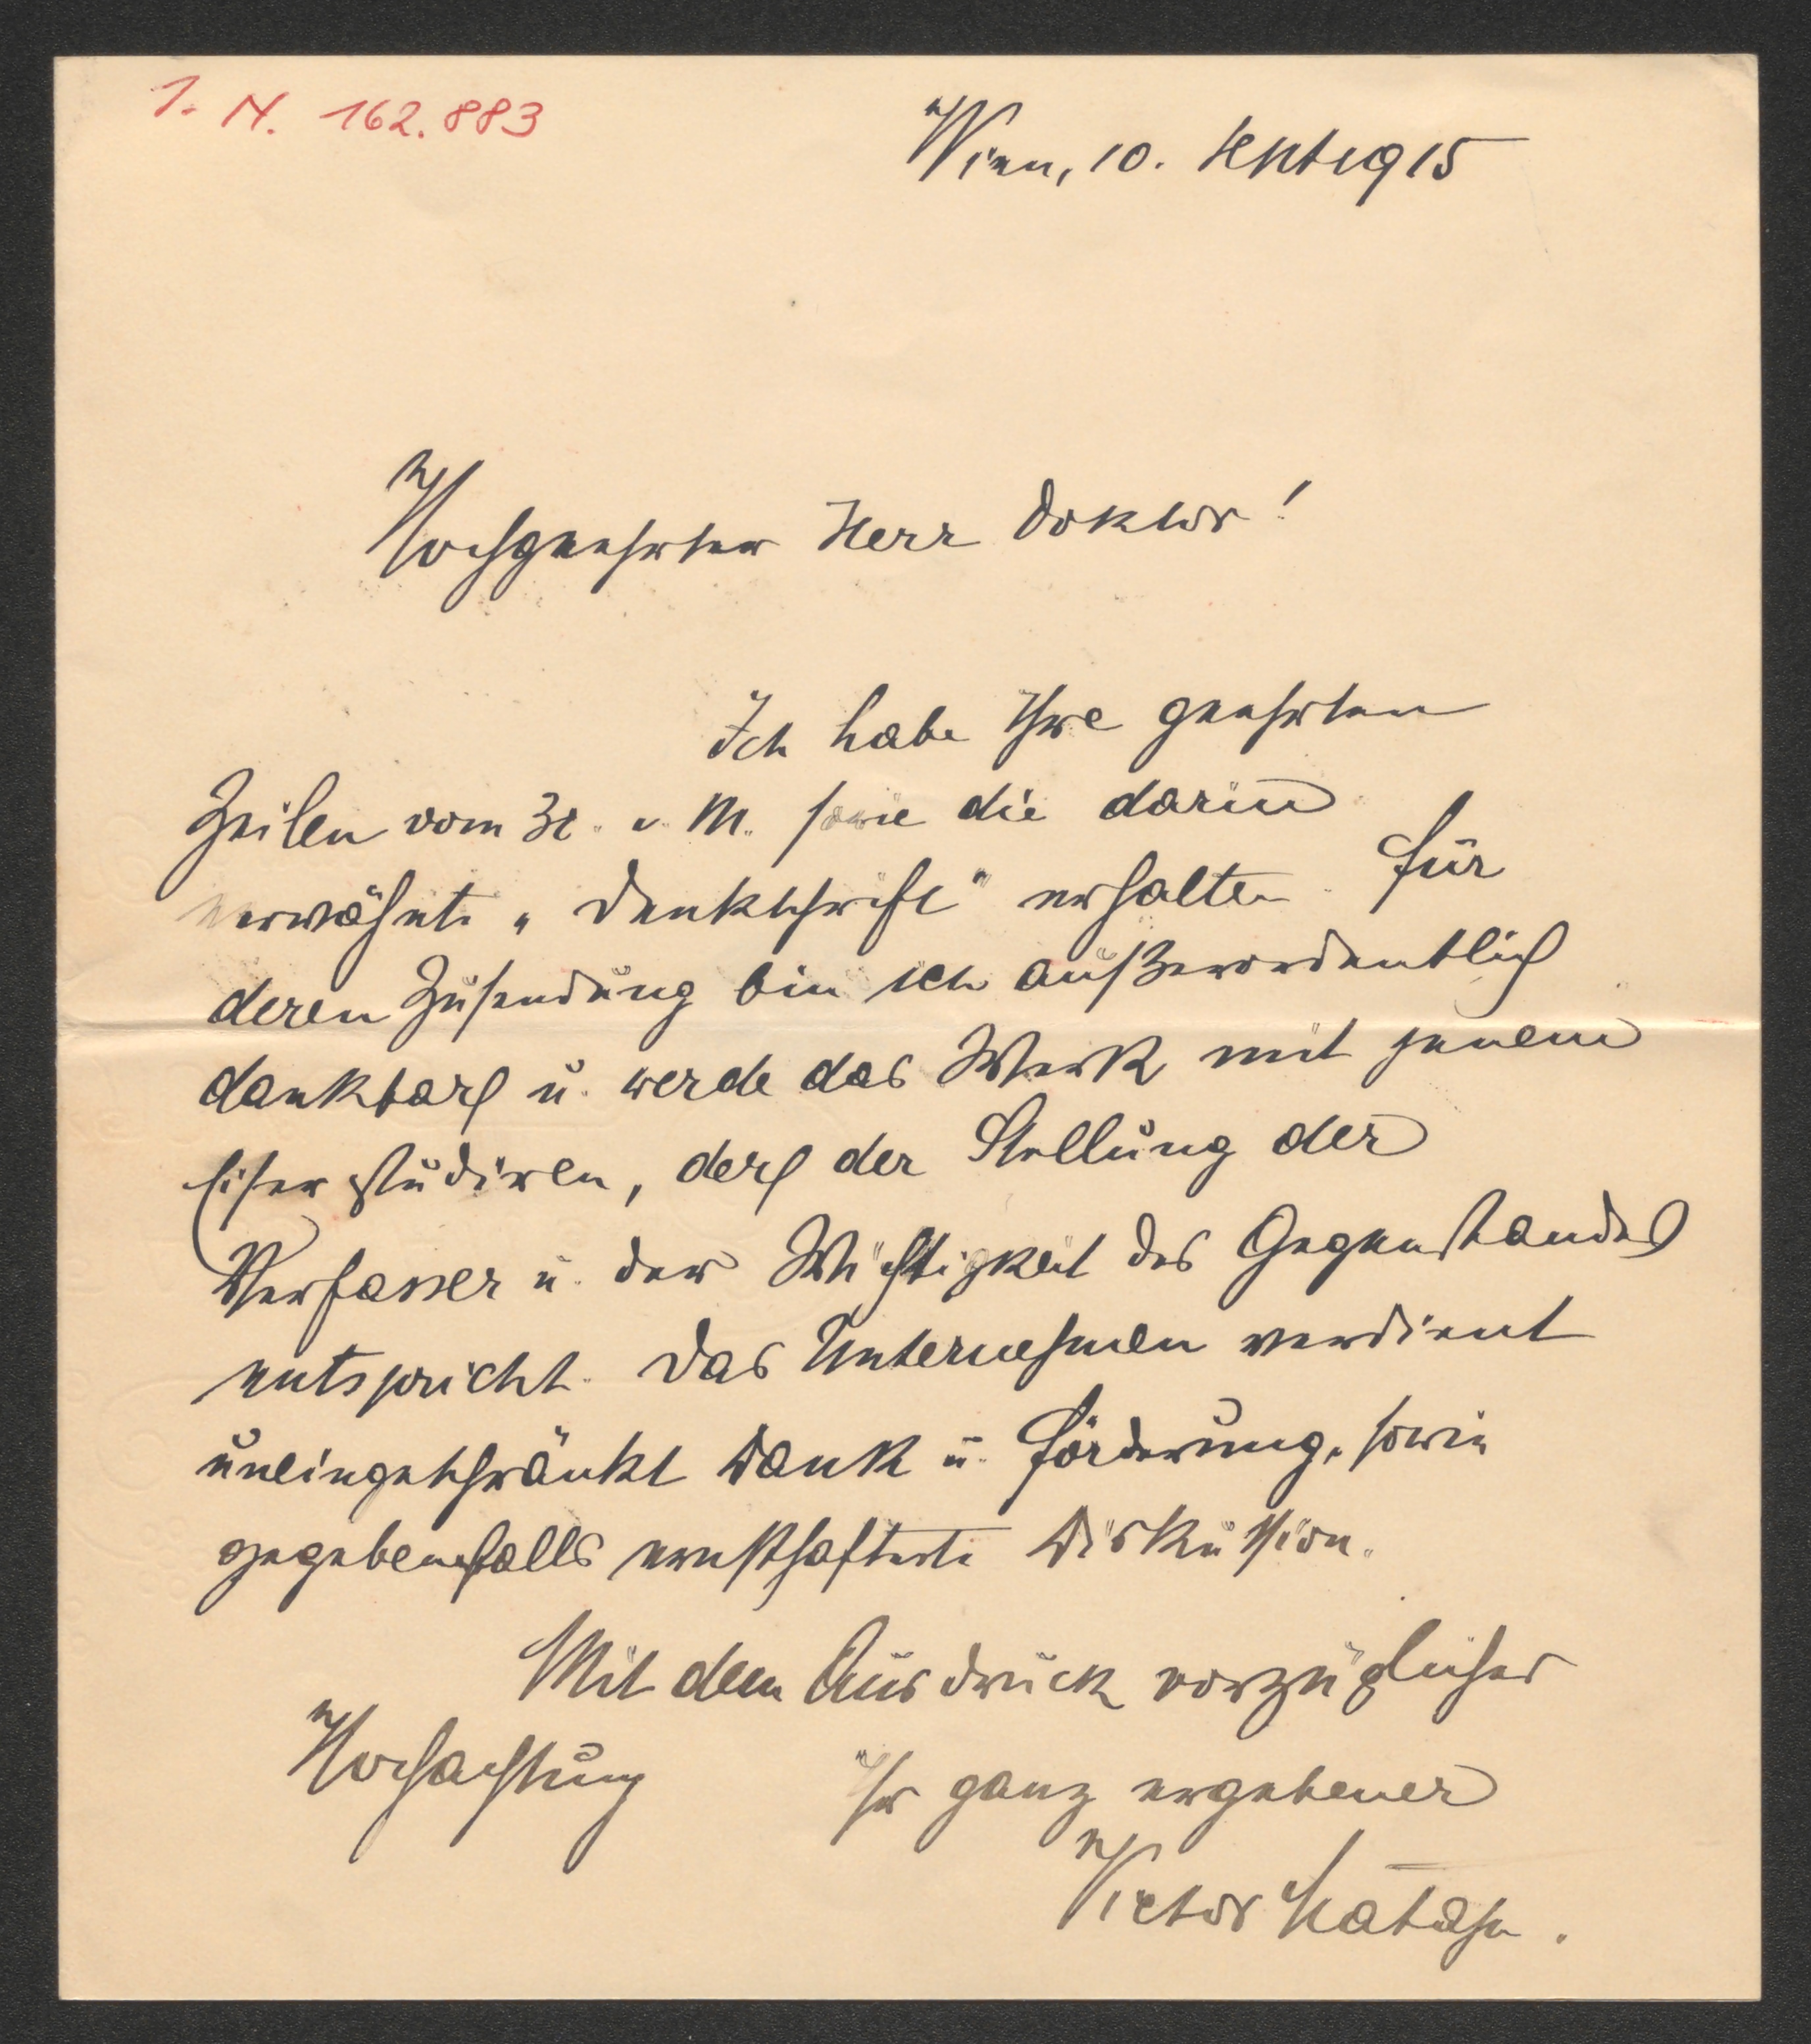 I. N. 162.883
Wien, 10. Sept 1915
Hochgeehrter Herr Doktor!
Ich habe Ihre geehrten
Zeilen vom 31. v. M. sowie die darin
erwähnte „Denkschrift" erhalten. Für
deren Zusendung bin ich außerordentlich
dankbar u. werde das Werk mit jenem
Eifer studiren, der der Stellung der
Verfasser u. der Wichtigkeit des Gegenstandes
entspricht. Das Unternehmen verdient
uneingeschränkt Dank u. Förderung, sowie
gegebenenfalls ernsthafteste Diskussion.
Mit dem Ausdruck vorzüglicher
Hochachtung Ihr ganz ergebener
Victor Kataja.